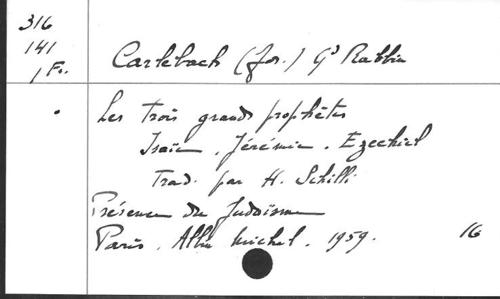 316
141
1 Fr.
Carlebach (Jos.) Gd Rabbin
Les Trois grands prophètes
Isaïe, Jérémie, Ezechiel
Trad. par H. Schilli
Présence du Judaïsme
Paris, Albin Michel, 1959. 16